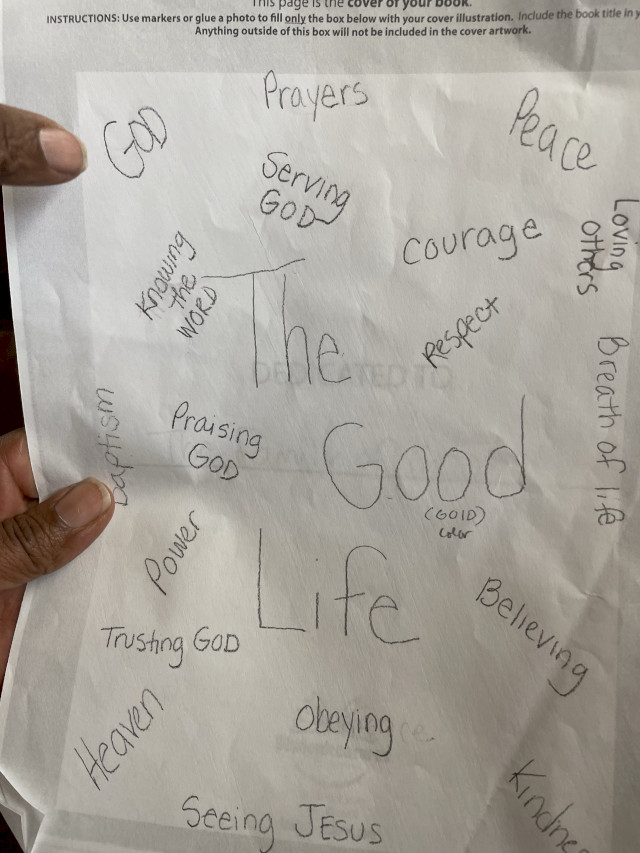 This page is the cover of your book.
INSTRUCTIONS: Use markers or glue a photo to fill only the box below with your cover illustration. Include the book title in y
Anything outside of this box will not be included in the cover artwork.
Prayers
GOD
Peace
Serving
GOD
Loving
others
Courage
Knowing
the
WORD
The
Respect
Breath of life
DEDICATED TO
Baptism
Praising
GOD
Good
(GOlD)
color
Power
Life
Believing
Trusting GOD
Heaven
Obeying
Kindne
Seeing JESUS